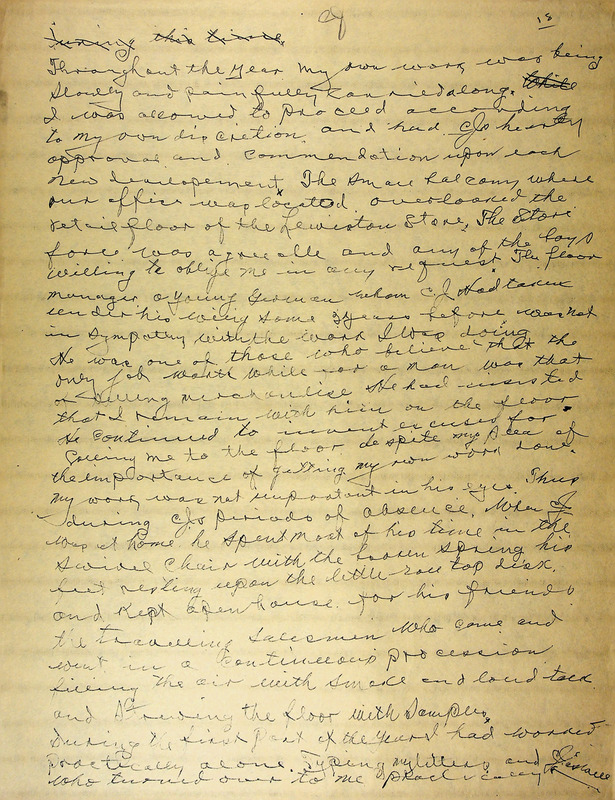 18
during this time
Throughout the year my own work was being
slowly and painfully carried along. While
I was allowed to proceed according
to my own discretion and had CJs hearty
approval and commendation upon each
new development. The small balcony where
our office was located overlooked the
retail floor of the Lewiston Store. The Store
force was agreeable and any of the boys
willing to oblige me in any request The floor
manager, a young German whom CJ Had taken
under his wing some 3 years before was not
in sympathy with the work I was doing
He was one of those who believe that the
only job worth while for a man was that
of selling merchandise He had insisted
that I remain with him on the floor.
He continued to invent excuses for
calling me to the floor despite my plea of
the importance of getting my own work done.
My work was not important in his eyes. Thus
during CJs periods of absence. When CJ
was at home he spent most of his time in the
Swivel Chair with the broken spring his
feet resting upon the little roll top desk.
and kept open house for his friends
the travelling salesmen who came and
went in a continuous procession
filling the air with smoke and loud talk
and strewing the floor with samples.
During the first part of the year I had worked
practically alone. Typing my letters and
who turned over to me practically